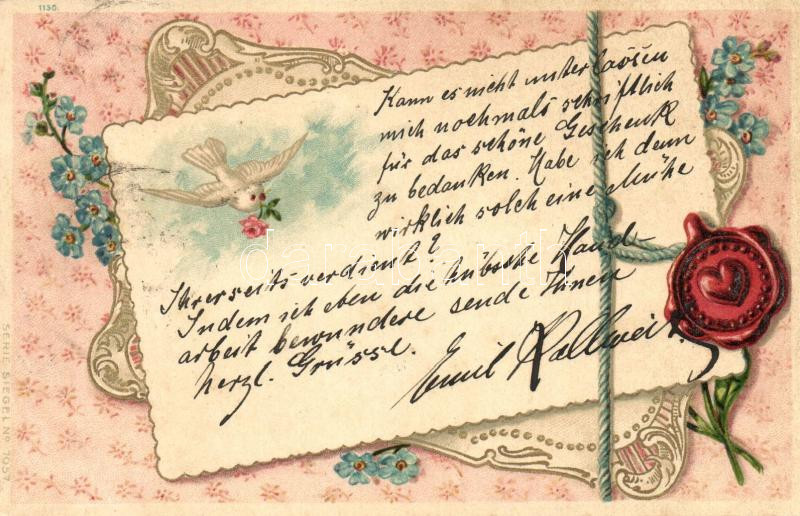 1130.
Kann es nicht unterlassen
mich nochmals schriftlich
für das schöne Geschenk
zu bedanken. Habe ich denn
wirklich solch eine Mühe
Ihrerseits verdient?
Indem ich eben die hübsche Hand-
arbeit bewundere sende Ihnen
herzl. Grüsse.
Emil
SERIE SIEGEL No 7057
darabanth